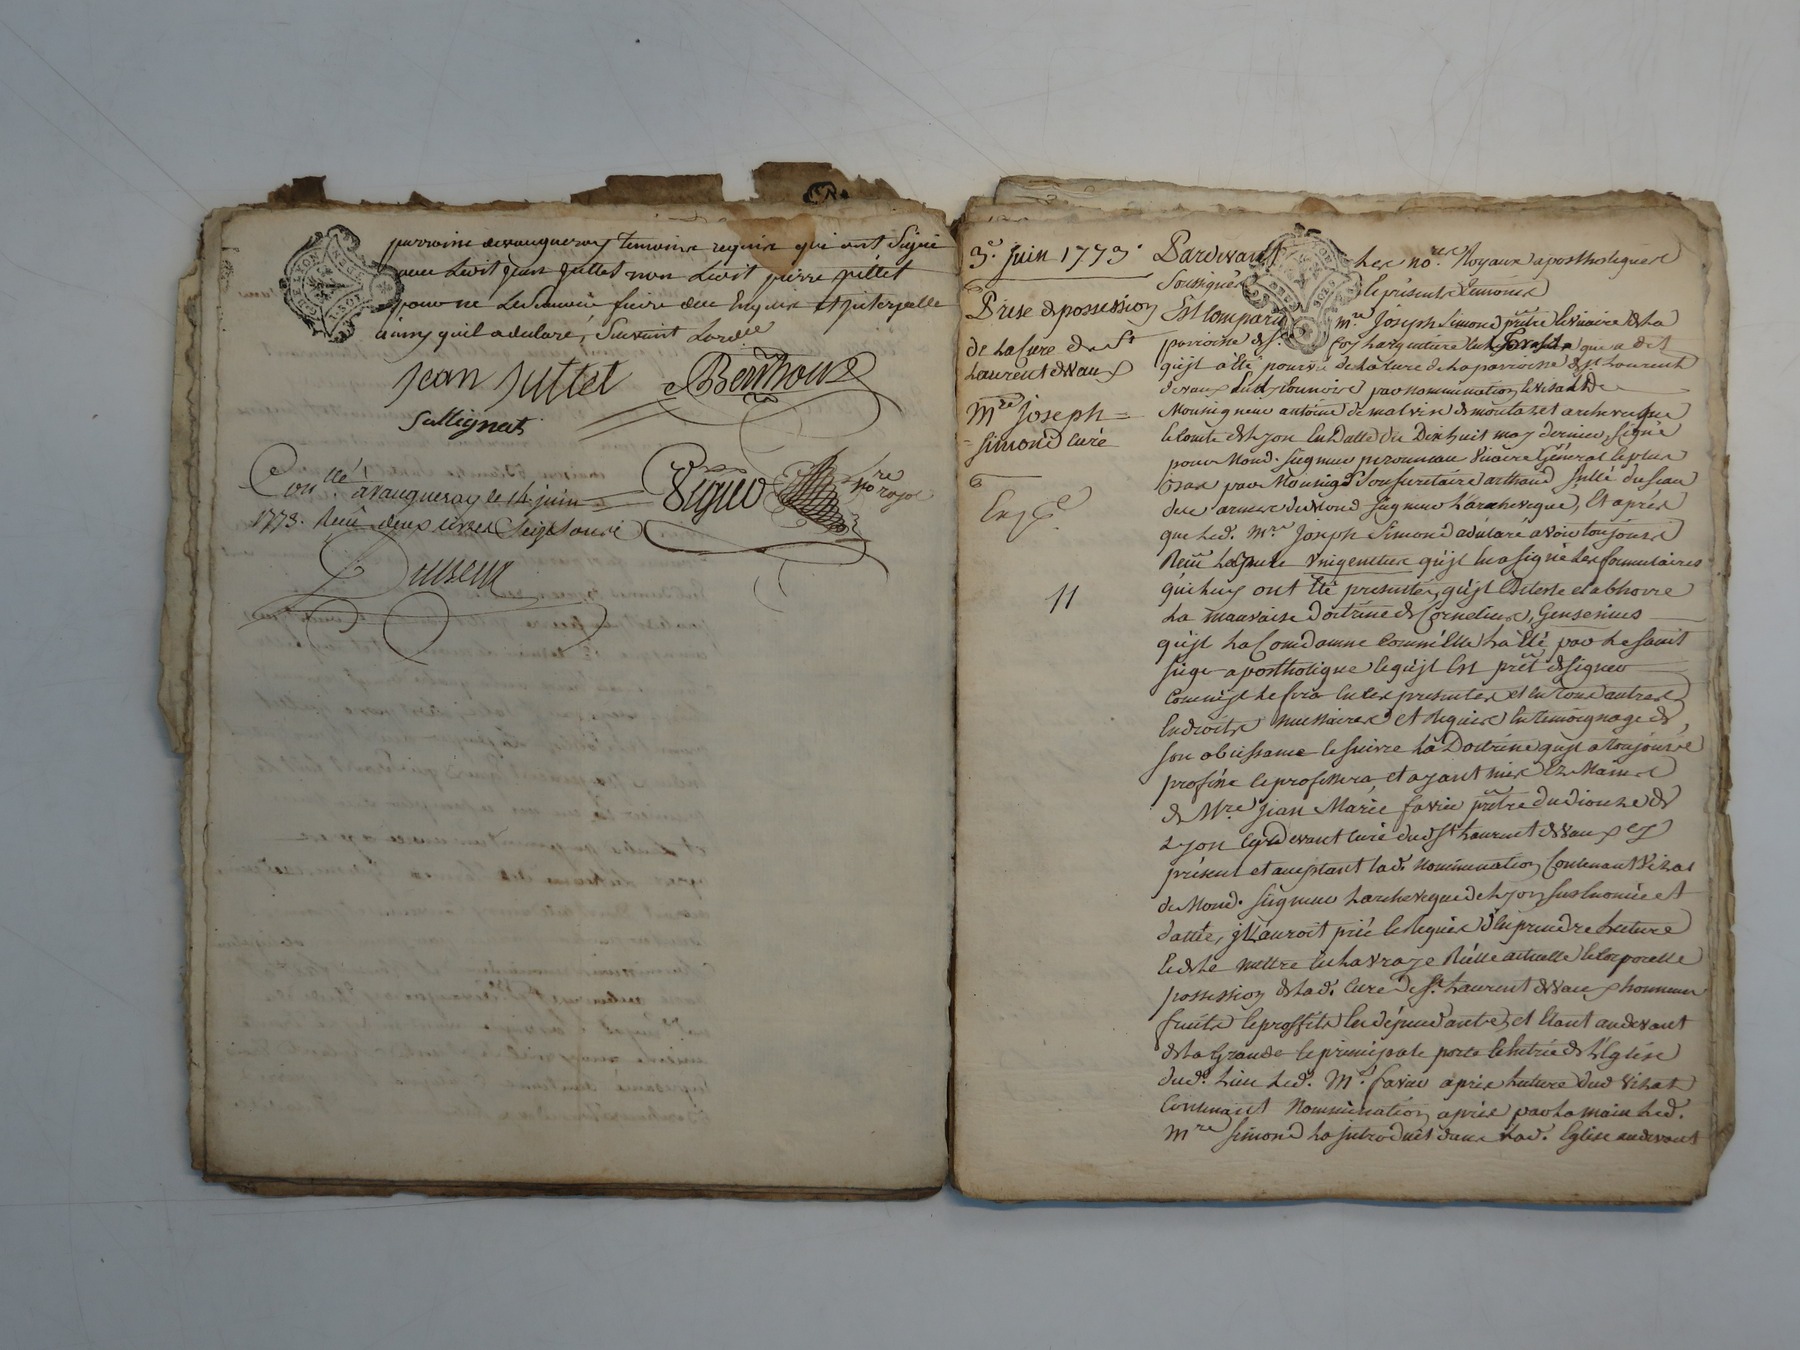 parroisse de vaugneray temoins requis qui ont signé
avec ledit jean juttet non ledit pierre pittet
pour ne le sçavoir faire de ce enquis et interpellé
ainsy quil a declaré, suivant lord.ce
jean juttet Berthous
Sallignat
Con.llé à vaugneray le 14 juin
1773. Reçu deux livres seize sous
Viguo no.re royal
3.e juin 1773.
Prise de possession
de la Cure de S.t
Laurent de Vaux
M.re Joseph =
= Simond Curé
11
Pardevant les no.res Royaux apostholiques
soussignés le présents temoins
Est Comparu m.re Joseph Simond prêtre vicaire de la
parroisse de S.t foy largentiere qui a dit
qu'jl a été pourvu de la Cure de la parroisse de S.t Laurent
devaux par nomination et visa de
Monsigneur antoine de malvin de montazet archeveque
et Comte de Lyon en datte du Dix huit may dernier, signé
pour Mond. Seigneur vicaire Général et plus
bas par Monseig.r son secretaire arthaud scellé du sceau
des armes de Mond Seigneur L'archeveque, Et après
que led. M.re Joseph Simond a déclaré avoir toujours
Reçu La bulle unigenitus qu'jl en a signé les formulaires
qui luy ont été presentés, qu'jl déteste et abhorre
La mauvaise doctrine de Cornelius, Gensenius
qu'jl la Condamne Comme elle l'a été par le saint
siège apostholique et qu'jl est prêt de signer
Comme jl le fera en les presentes et en tous autres
Endroits necessaires et Requis en temoignage de
son obeissance et suivre la Doctrine qu'jl a toujours
professée et professera, et ayant mis Ez Mains
de M.re Jean Marie favier prêtre du dioceze de
Lyon cy devant Curé dud S.t Laurent de Vaux cy
présent et acceptant lad. nomination Contenant visa
de Mond. Seigneur Larcheveque de Lyon sus enoncée et
dattée, jl l'auroit prié et Requis d'en prendre lecture
et de le mettre en la vraye Réelle actuelle et Corporelle
possession de lad. Cure de S.t Laurent de Vaux honneurs
fruits et proffits en dépendants, et étant audevant
de la Grande et principale porte et entrée de l'Eglise
dud. Lieu Led. M.re favier après lecture dud visa
Contenant Nommination, a pris par la main led.
M.re Simond La introduit dans lad. Eglise audevant